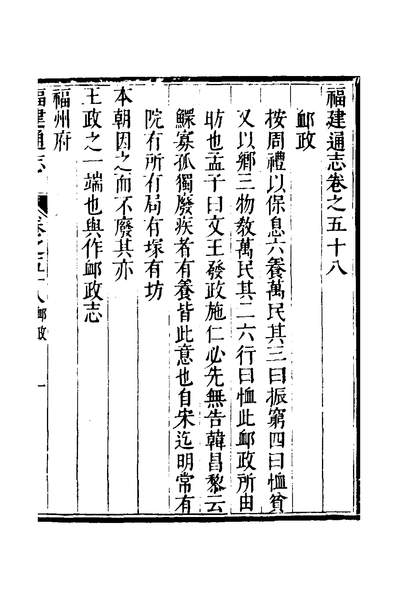 福建通志卷之五十八
卹政
按周禮以保息六養萬民其三曰振窮四曰恤貧
又以鄉三物敎萬民其二六行曰恤此卹政所由
昉也孟子曰文王發政施仁必先無告韓昌黎云
鰥寡孤獨廢疾者有養皆此意也自宋迄明常有
院有所有局有塚有坊
本朝因之而不廢其亦
王政之一端也與作卹政志
福州府
福建通志
卷之五十八
卹政
一